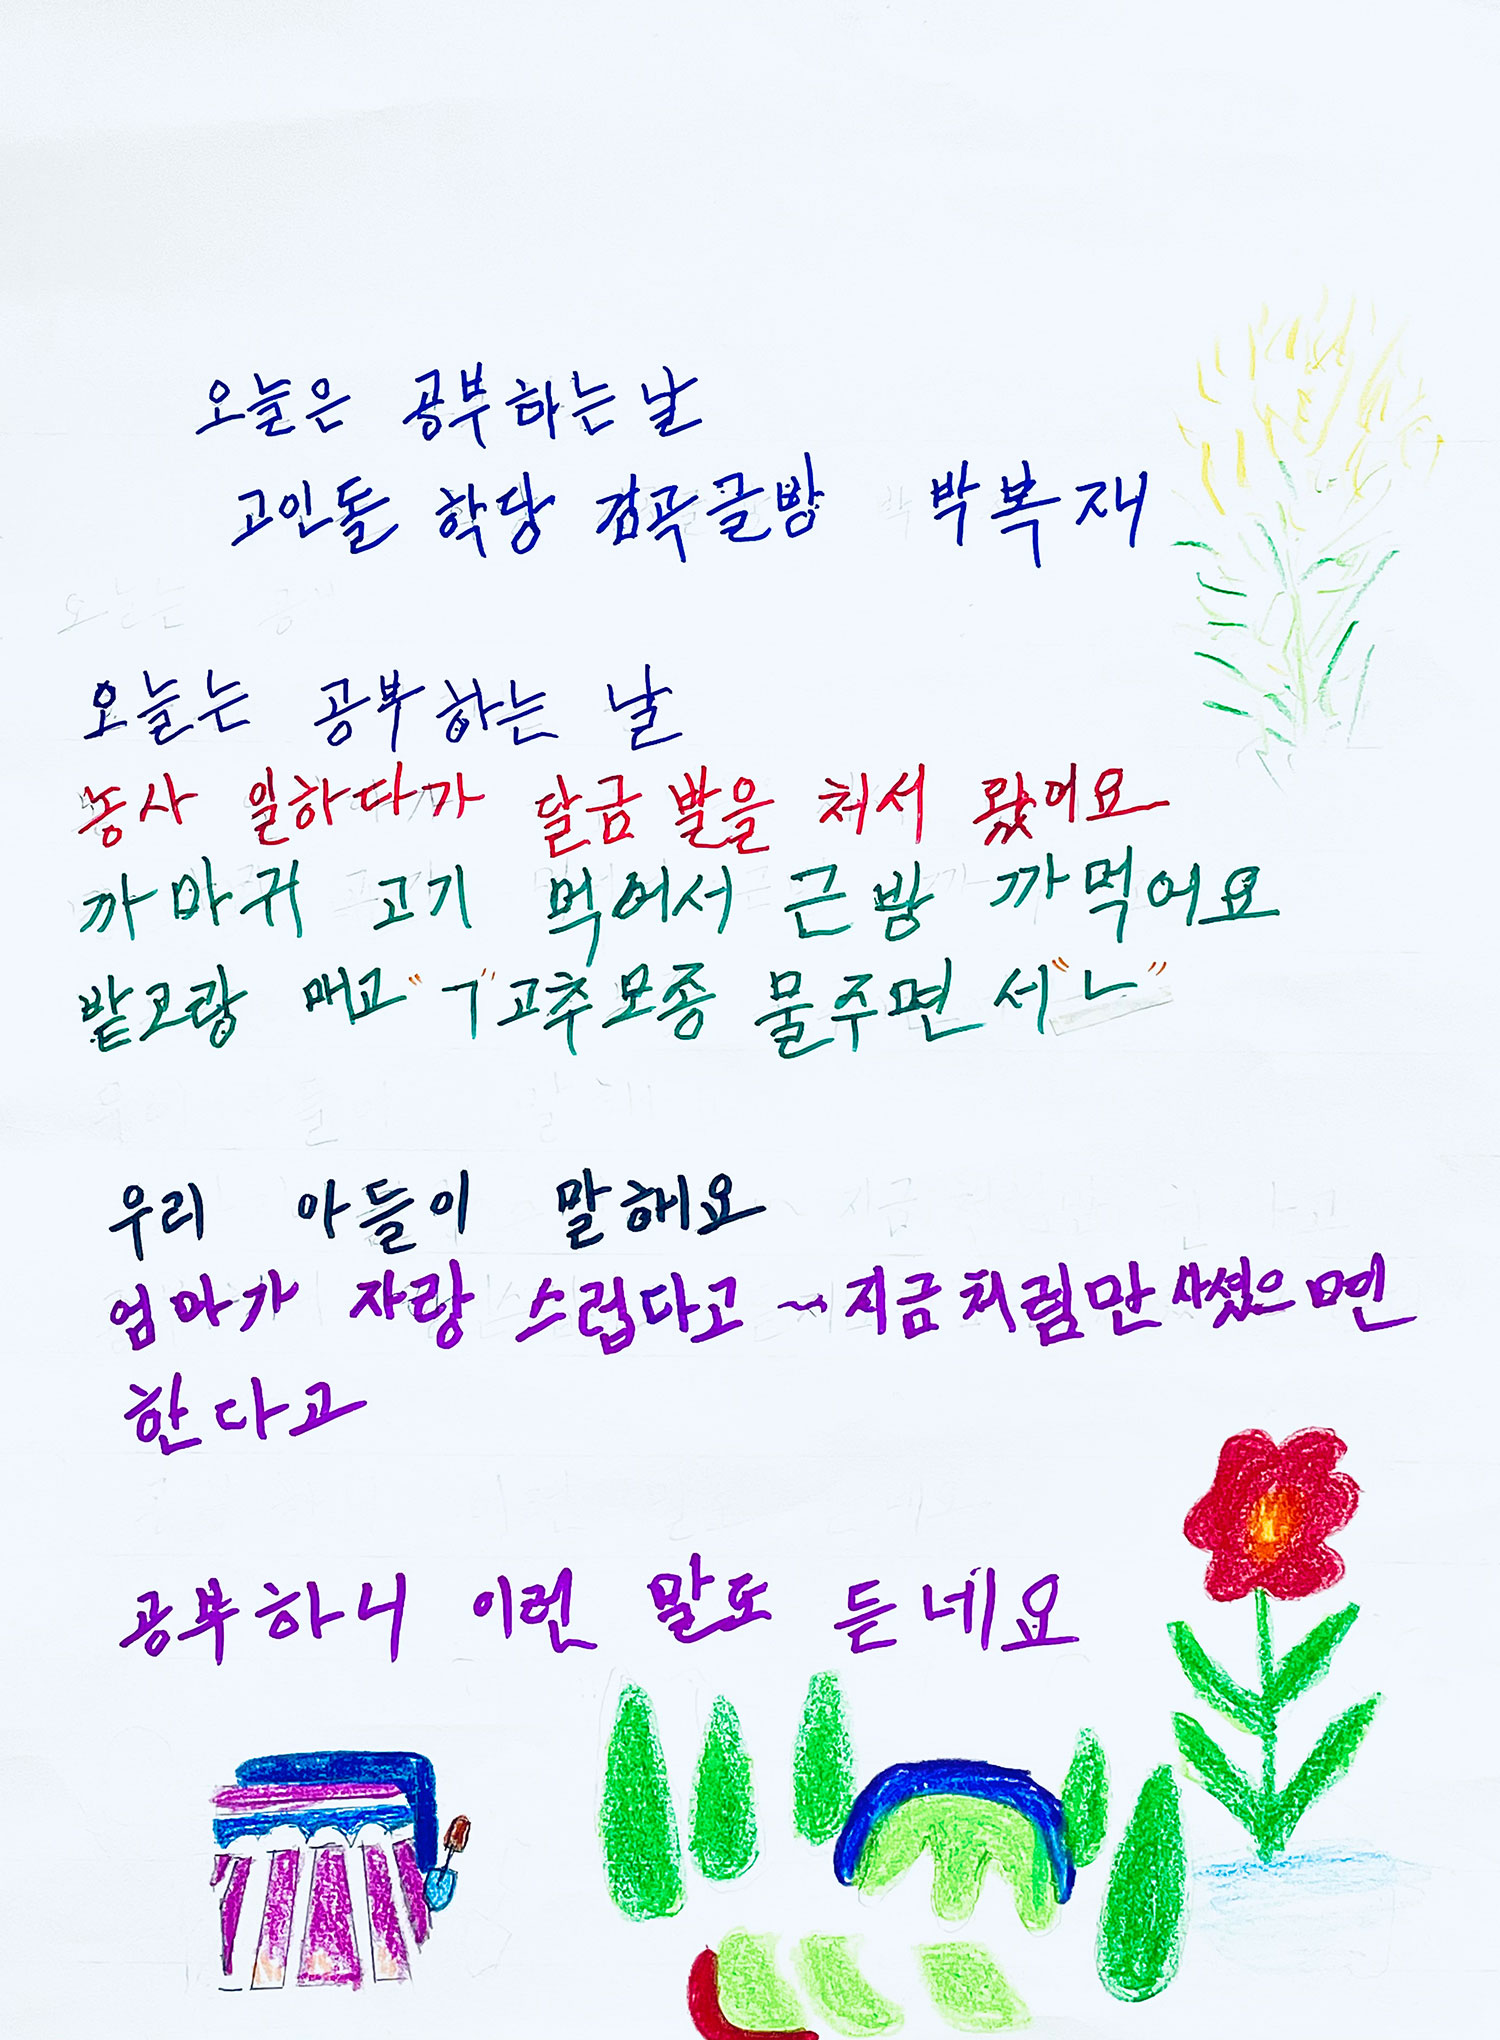 오늘은 공부하는 날
고인돌 학당 검곡글방 박복재
오늘는 공부하는 날
농사 일하다가 달금 발을 처서 왔어요
까마귀 고기 먹어서 근방 까먹어요
밭고랑 매고 "ㄱ" 고추모종 물주면서 "ㄴ"
우리 아들이 말해요
엄마가 자랑 스럽다고 ~ 지금처럼만 사셨으면
한다고
공부하니 이런 말도 듣네요